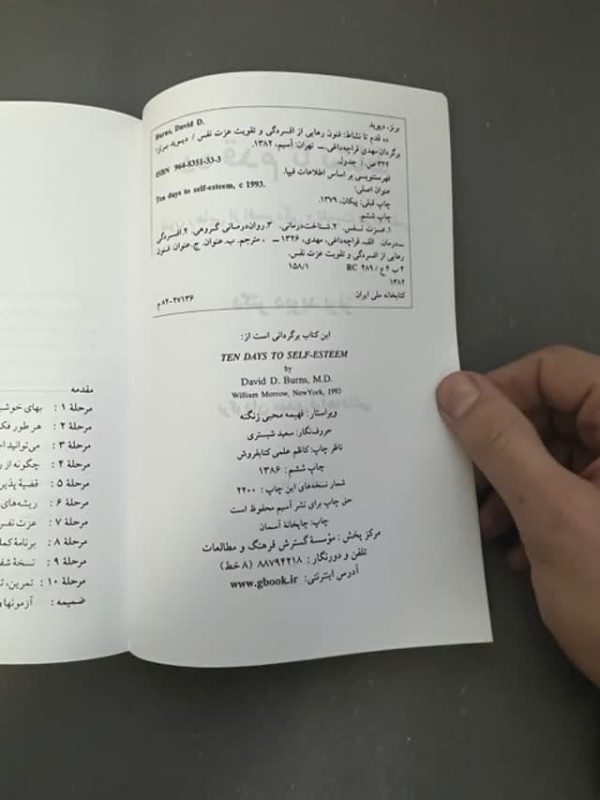 Burns, David D.
برنز، دیوید
ده قدم تا نشاط: فنون رهایی از افسردگی و تقویت عزت نفس / دیوید برنز؛
برگردان مهدی قراچه‌داغی. ــ تهران: آسیم، ۱۳۸۲.
۳۴۴ ص. جدول.
ISBN 964-8351-33-3
فهرستنویسی بر اساس اطلاعات فیپا.
عنوان اصلی:
Ten days to self-esteem, c 1993.
چاپ قبلی: پیکان، ۱۳۷۹.
چاپ ششم
۱. عزت نفس. ۲. شناخت‌درمانی. ۳. روان‌درمانی گروهی. ۴. افسردگی
ــ درمان. الف. قراچه‌داغی، مهدی، ۱۳۲۶ ــ ، مترجم. ب. عنوان. ج. عنوان: فنون
رهایی از افسردگی و تقویت عزت نفس.
۱۵۸/۱
RC ۴۸۹ / ع ۴ ب ۴
۱۳۸۲
کتابخانه ملی ایران
۸۲-۲۷۱۳۶ م
این کتاب برگردانی است از:
TEN DAYS TO SELF-ESTEEM
by
David D. Burns, M.D.
William Morrow, NewYork, 1993
ویراستار: فهیمه محبی زنگنه
حروف‌نگار: سعید شبستری
ناظر چاپ: کاظم علمی کتابفروش
چاپ ششم: ۱۳۸۶
شمار نسخه‌های این چاپ: ۲۲۰۰
حق چاپ برای نشر آسیم محفوظ است
چاپ: چاپخانۀ آسمان
مرکز پخش: مؤسسۀ گسترش فرهنگ و مطالعات
تلفن و دورنگار: ۸۸۷۹۴۲۱۸ (۸ خط)
آدرس اینترنتی: www.gbook.ir
مقدمه
مرحلۀ ۱ : بهای خوشبـ
مرحلۀ ۲ : هر طور فکـ
مرحلۀ ۳ : می‌توانید ا
مرحلۀ ۴ : چگونه از ر
مرحلۀ ۵ : قضیۀ پذیر
مرحلۀ ۶ : ریشه‌های
مرحلۀ ۷ : عزت نفس
مرحلۀ ۸ : برنامۀ کما
مرحلۀ ۹ : نسخۀ شفـ
مرحلۀ ۱۰ : تمرین، تـ
ضمیمه : آزمونها و